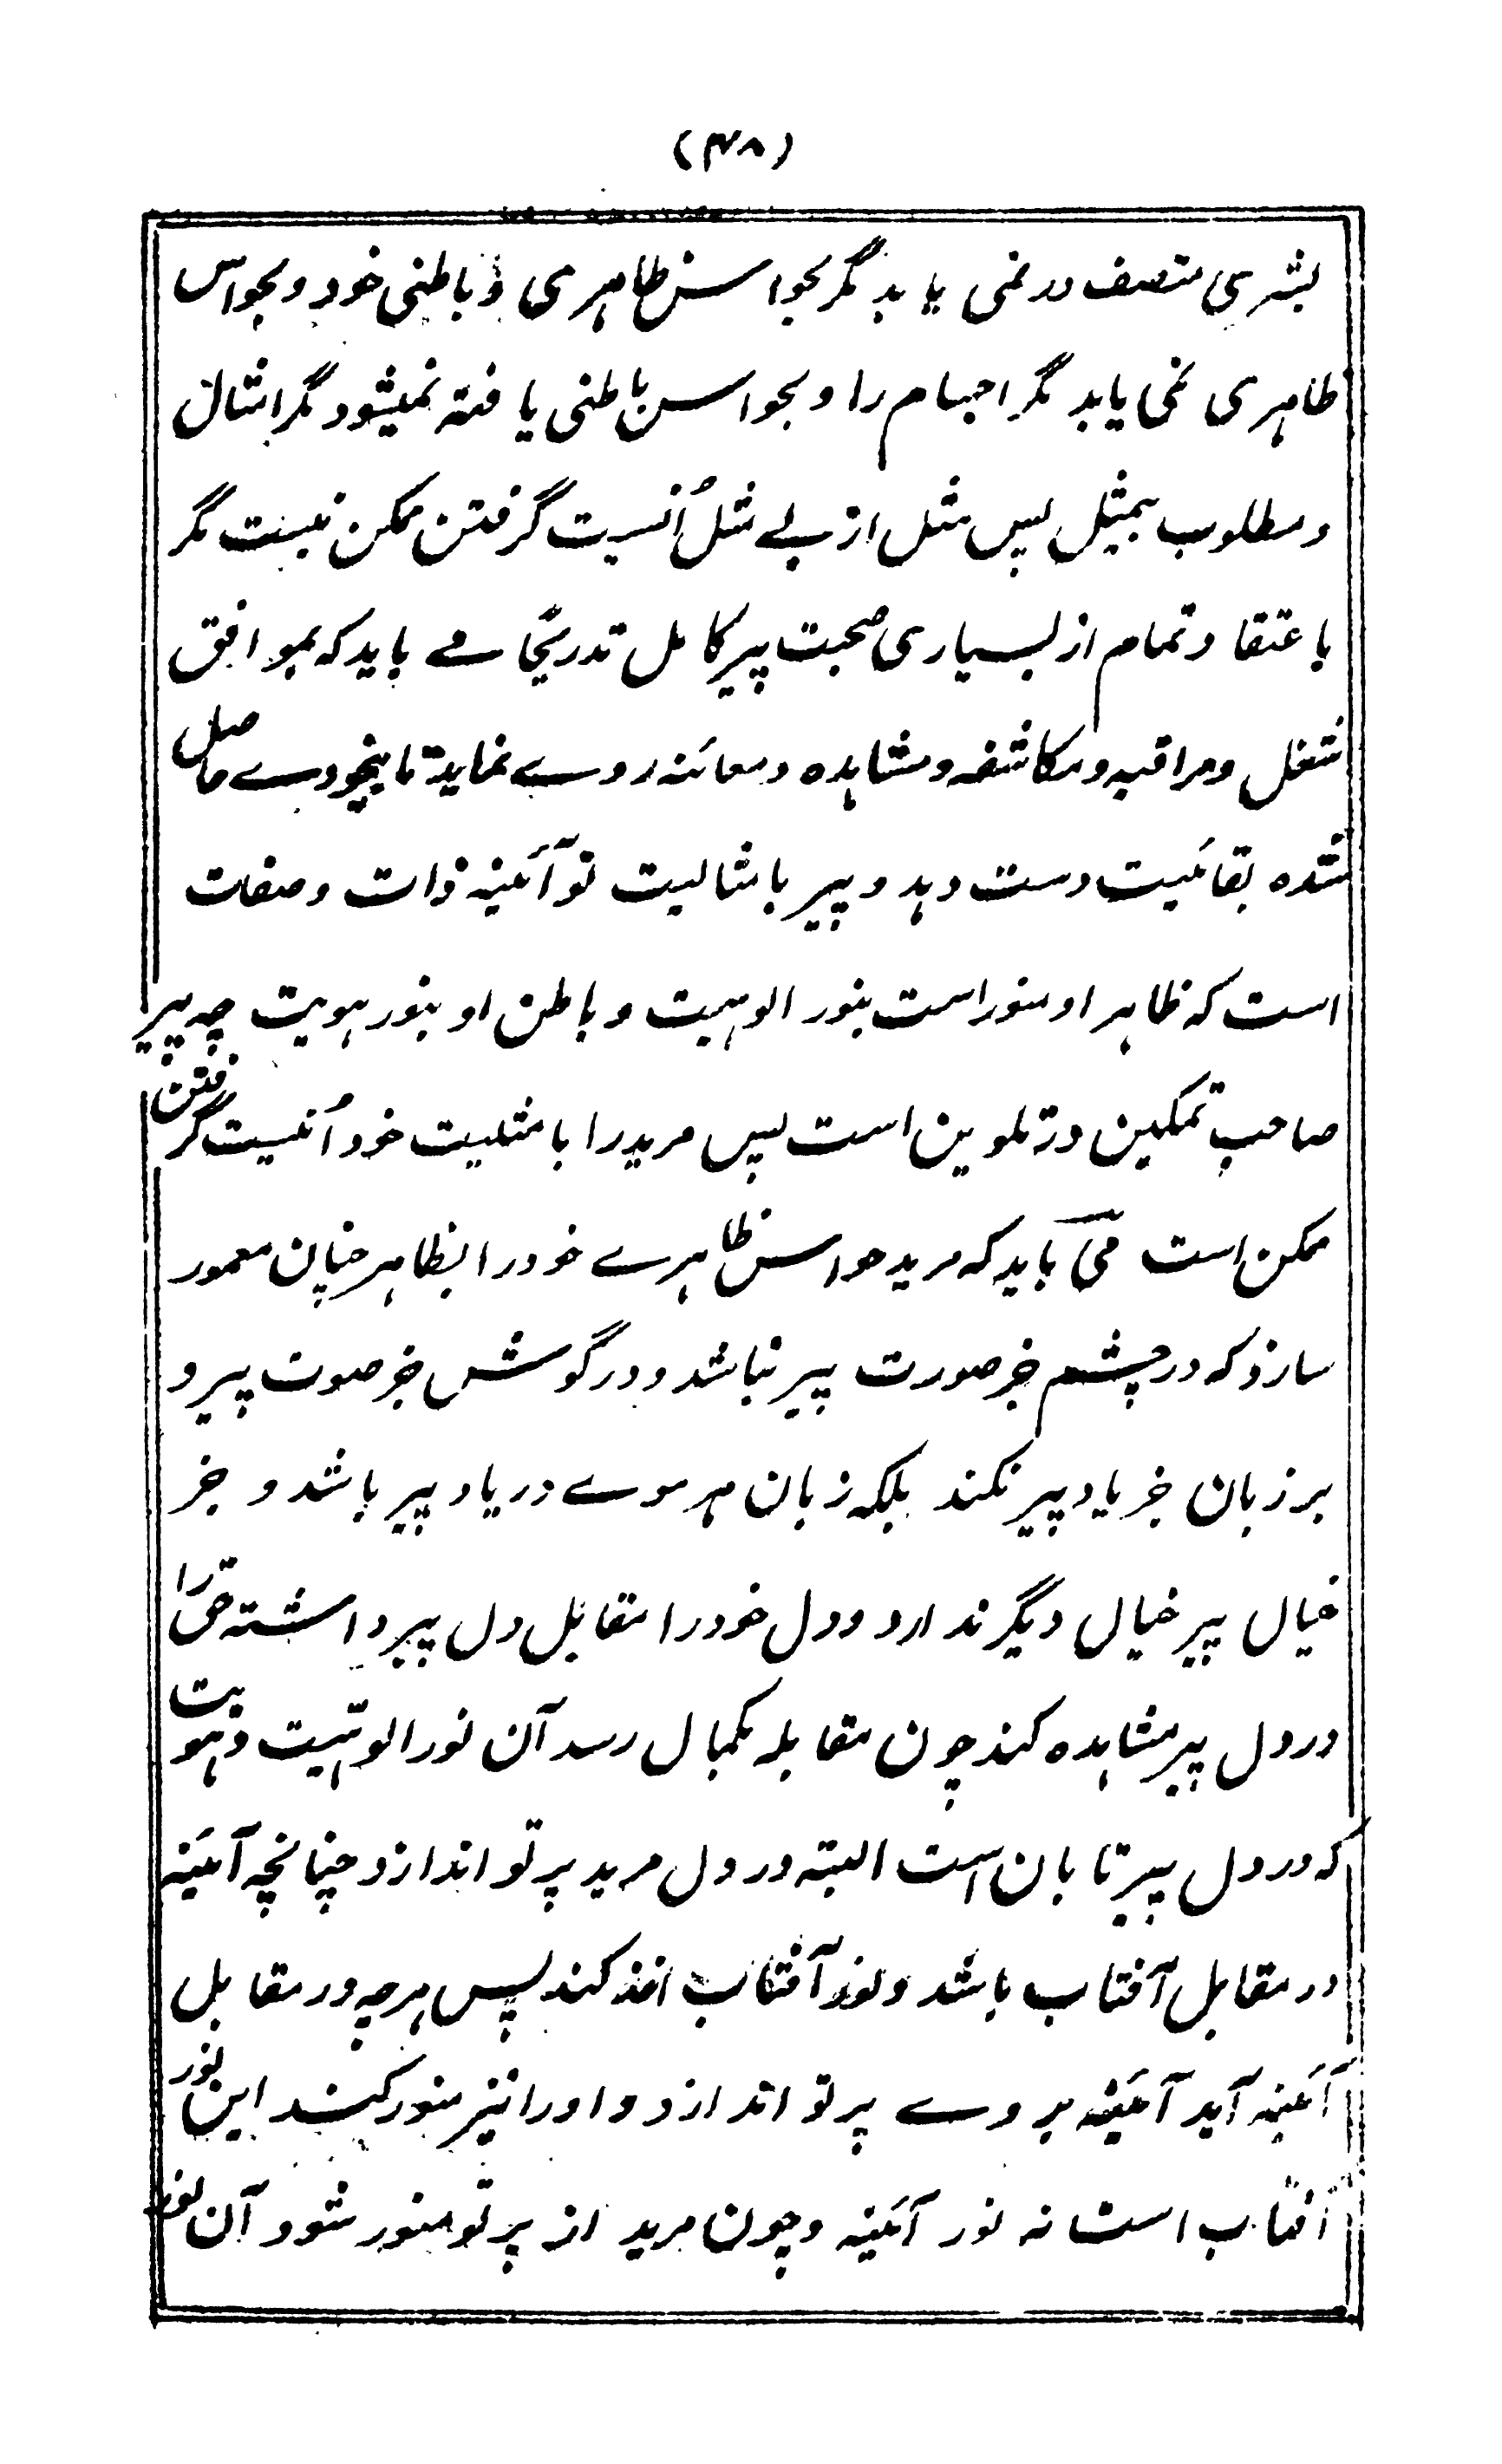 (۴۸)
بشری متصف در نمی یابد مگر بحواس ظاہری و باطنی خود و بحواس
ظاہری نمی یابد مگر اجسام را و بحواس باطنی یافتہ نمیشود مگر امثال
و مطلوب بیمثل پس مثل از بے مثل اُنسیت گرفتن ممکن نیست مگر
باعتقاد تمام از بسیاری صحبت پیر کامل تدریجًا مے باید کہ بموافق
شغل و مراقبہ و مکاشفہ و مشاہدہ و معائنہ روے نماید تا بیخودے حاصل
شدہ بقائیت دست دہد و پیر بامثالیت تو آئینہ ذات و صفات
است کہ ظاہر او منور است بنور الوہیت و باطن او بنور ہویت چہ پیر
صاحب تمکین در تلوین است پس مرید را با مثلیت خود اُنسیت گرفتن
ممکن است می باید کہ مرید حواس ظاہرے خود را بظاہر چنان معمور
سازد کہ در چشم جز صورت پیر نباشد و در گوش جز صوت پیر و
بر زبان جز یاد پیر نکند بلکہ زبان ہر موے در یاد پیر باشد و جز
خیال پیر خیال دیگر ندارد و دل خود را مقابل دل پیر داشتہ حق را
در دل پیر مشاہدہ کند چون مقابلہ بکمال رسد آن نور الوہیّت و ہویت
کہ در دل پیر تابان است البتہ در دل مرید پرتو اندازد چنانچہ آئینہ
در مقابل آفتاب باشد و نور آفتاب اخذ کند پس ہرچہ در مقابل
آئینہ آید آئینہ بر وے پرتو اندازد و او را نیز منور کند این نور
آفتاب است نہ نور آئینہ و چون مرید از پرتو منور شود آن نور